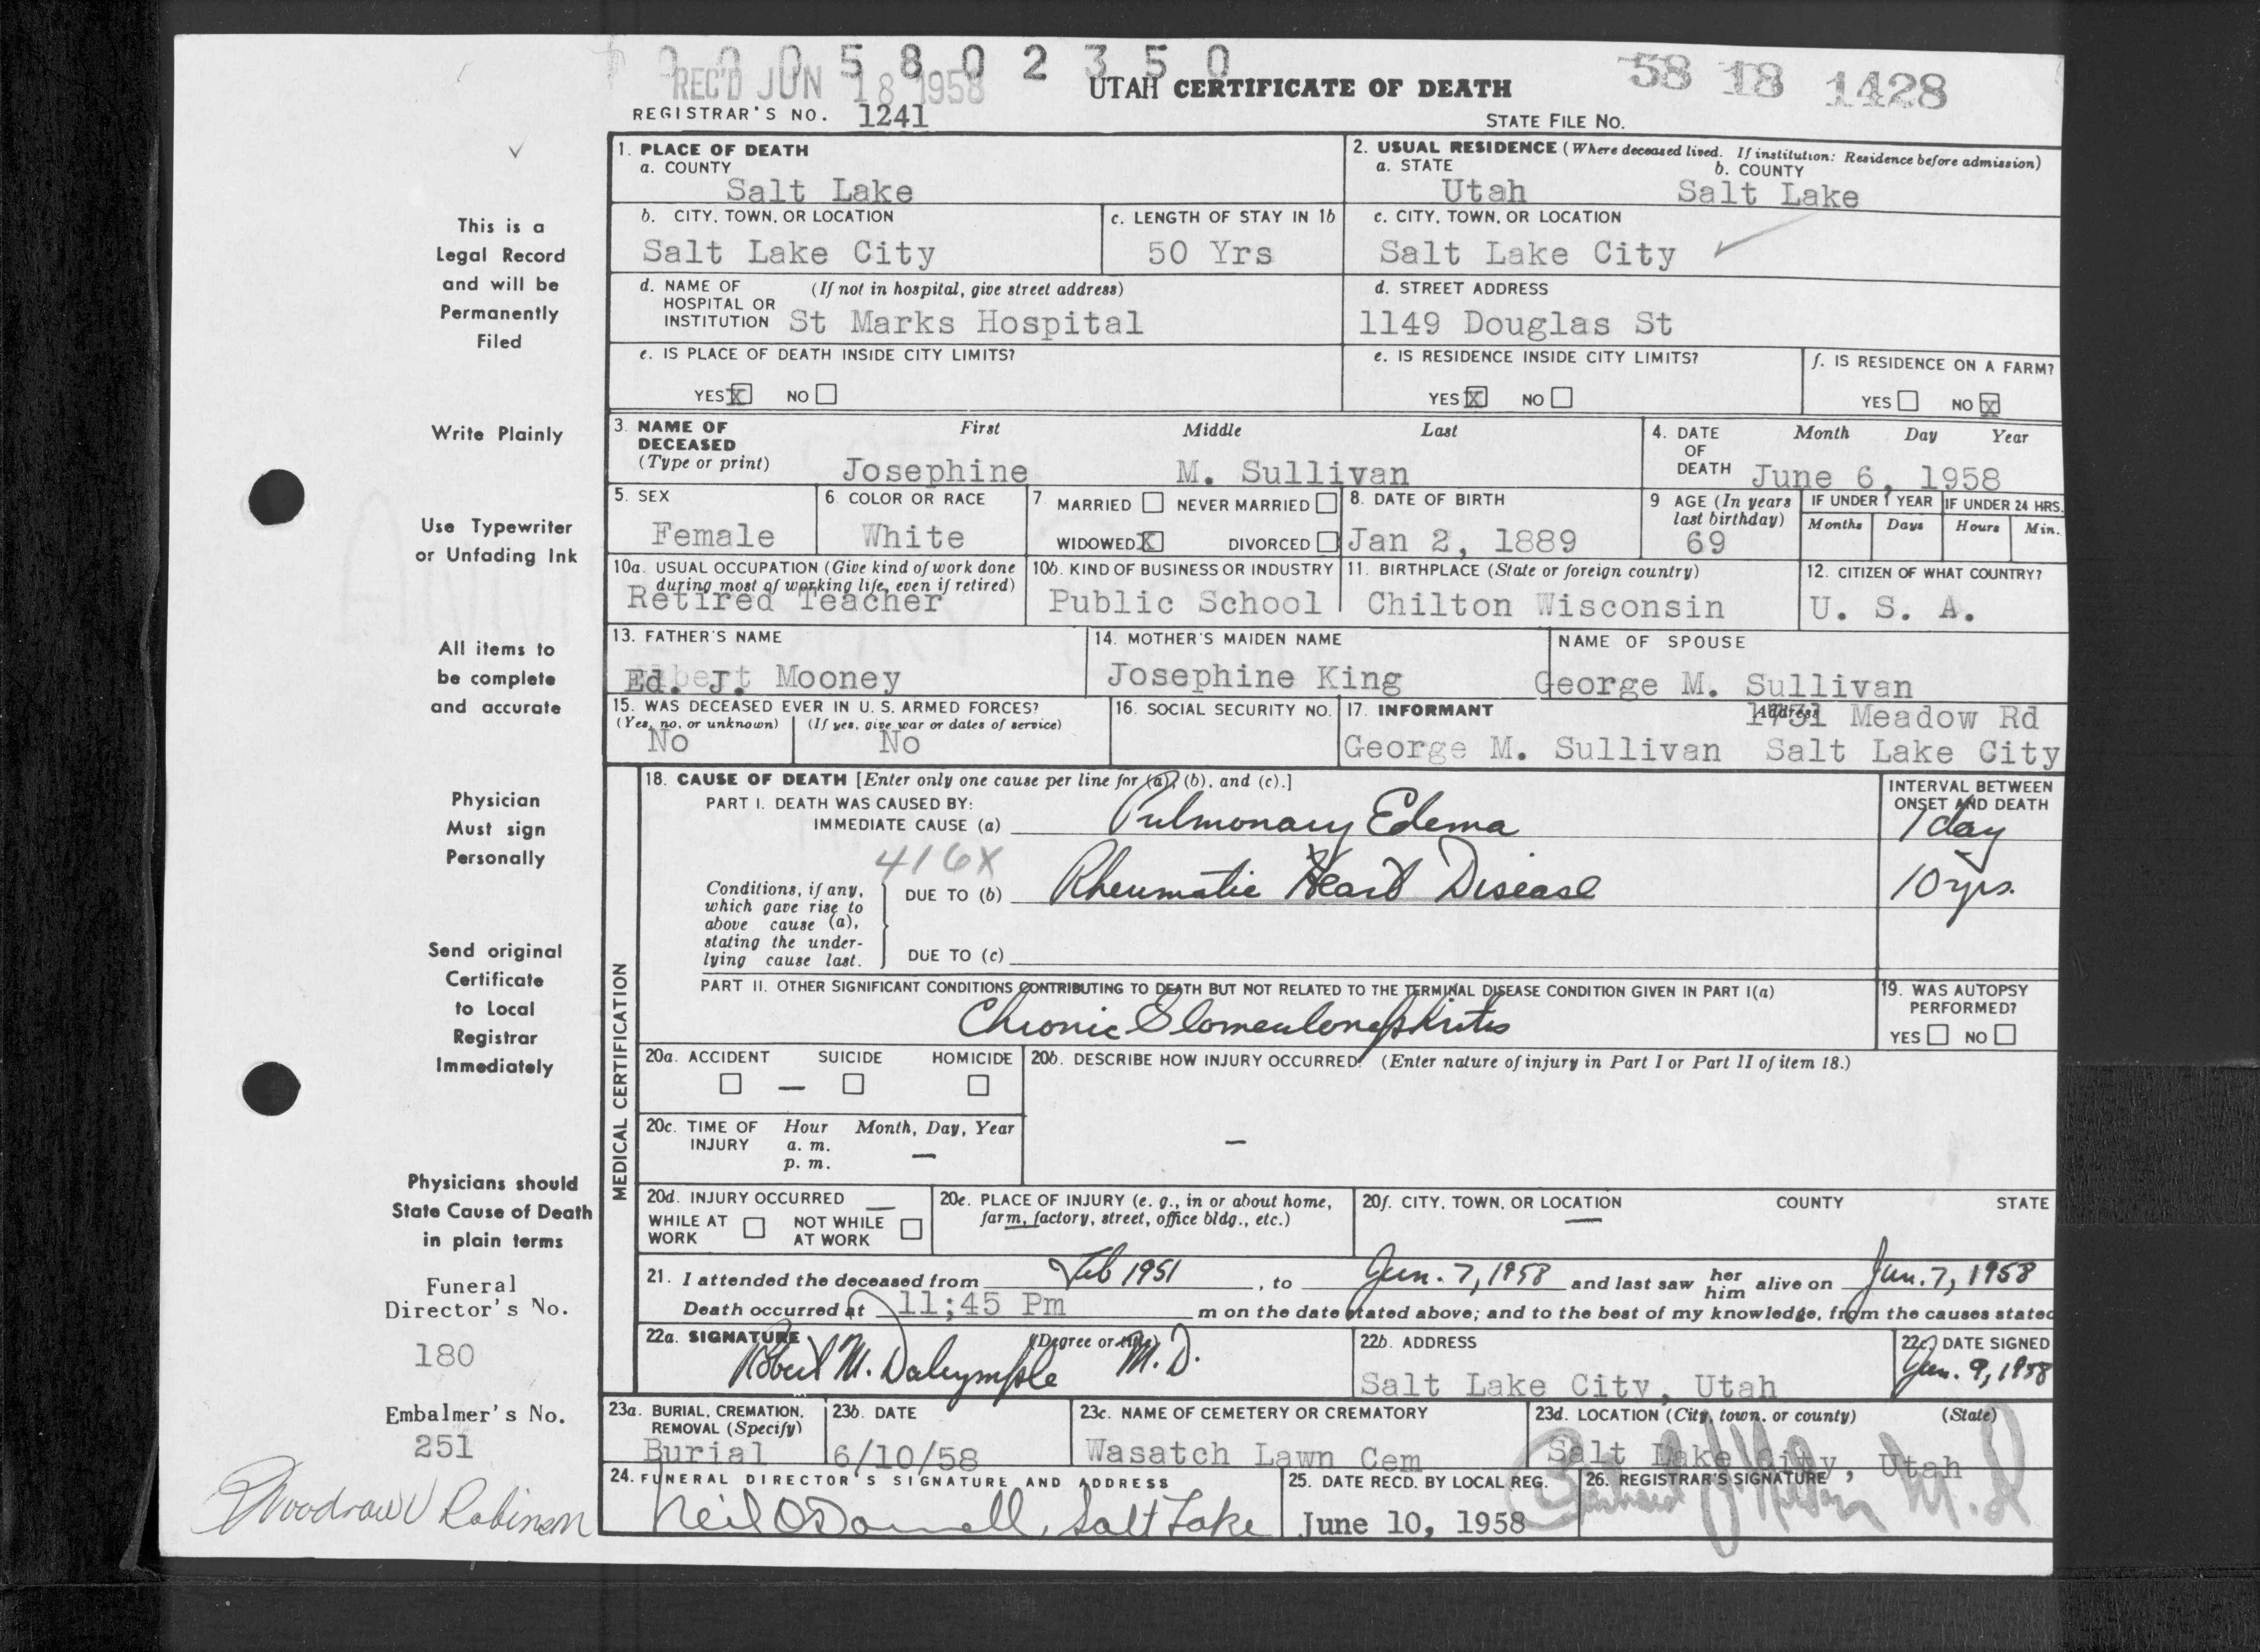 0 0 0 5 8 0 2 3 5 0
REC'D JUN 18 1958
UTAH CERTIFICATE OF DEATH
58 18 1428
REGISTRAR'S NO. 1241
STATE FILE NO.
This is a
Legal Record
and will be
Permanently
Filed
Write Plainly
Use Typewriter
or Unfading Ink
All items to
be complete
and accurate
Physician
Must sign
Personally
Send original
Certificate
to Local
Registrar
Immediately
Physicians should
State Cause of Death
in plain terms
Funeral
Director's No.
180
Embalmer's No.
251
Woodrow Robinson
1. PLACE OF DEATH
a. COUNTY
Salt Lake
2. USUAL RESIDENCE (Where deceased lived. If institution: Residence before admission)
a. STATE b. COUNTY
Utah Salt Lake
b. CITY, TOWN, OR LOCATION
Salt Lake City
c. LENGTH OF STAY IN 1b
50 Yrs
c. CITY, TOWN, OR LOCATION
Salt Lake City
d. NAME OF (If not in hospital, give street address)
HOSPITAL OR
INSTITUTION St Marks Hospital
d. STREET ADDRESS
1149 Douglas St
e. IS PLACE OF DEATH INSIDE CITY LIMITS?
YES X NO
e. IS RESIDENCE INSIDE CITY LIMITS?
YES X NO
f. IS RESIDENCE ON A FARM?
YES NO X
3. NAME OF First Middle Last
DECEASED
(Type or print) Josephine M. Sullivan
4. DATE Month Day Year
OF
DEATH June 6, 1958
5. SEX
Female
6. COLOR OR RACE
White
7. MARRIED NEVER MARRIED
WIDOWED X DIVORCED
8. DATE OF BIRTH
Jan 2, 1889
9 AGE (In years
last birthday)
69
IF UNDER 1 YEAR
Months Days
IF UNDER 24 HRS.
Hours Min.
10a. USUAL OCCUPATION (Give kind of work done
during most of working life, even if retired)
Retired Teacher
10b. KIND OF BUSINESS OR INDUSTRY
Public School
11. BIRTHPLACE (State or foreign country)
Chilton Wisconsin
12. CITIZEN OF WHAT COUNTRY?
U. S. A.
13. FATHER'S NAME
Ed. J. Mooney
14. MOTHER'S MAIDEN NAME
Josephine King
NAME OF SPOUSE
George M. Sullivan
15. WAS DECEASED EVER IN U. S. ARMED FORCES?
(Yes, no, or unknown) (If yes, give war or dates of service)
No No
16. SOCIAL SECURITY NO.
17. INFORMANT Address
1731 Meadow Rd
George M. Sullivan Salt Lake City
MEDICAL CERTIFICATION
18. CAUSE OF DEATH [Enter only one cause per line for (a), (b), and (c).]
PART I. DEATH WAS CAUSED BY:
IMMEDIATE CAUSE (a) Pulmonary Edema
INTERVAL BETWEEN
ONSET AND DEATH
1 day
416X
Conditions, if any,
which gave rise to
above cause (a),
stating the under-
lying cause last.
DUE TO (b) Rheumatic Heart Disease
10 yrs.
DUE TO (c)
PART II. OTHER SIGNIFICANT CONDITIONS CONTRIBUTING TO DEATH BUT NOT RELATED TO THE TERMINAL DISEASE CONDITION GIVEN IN PART I(a)
Chronic Glomerulonephritis
19. WAS AUTOPSY
PERFORMED?
YES NO
20a. ACCIDENT SUICIDE HOMICIDE
20b. DESCRIBE HOW INJURY OCCURRED. (Enter nature of injury in Part I or Part II of item 18.)
20c. TIME OF Hour Month, Day, Year
INJURY a. m.
p. m.
20d. INJURY OCCURRED
WHILE AT NOT WHILE
WORK AT WORK
20e. PLACE OF INJURY (e. g., in or about home,
farm, factory, street, office bldg., etc.)
20f. CITY, TOWN, OR LOCATION COUNTY STATE
21. I attended the deceased from Feb 1951, to Jun. 7, 1958 and last saw her him alive on Jun. 7, 1958
Death occurred at 11;45 Pm m on the date stated above; and to the best of my knowledge, from the causes stated
22a. SIGNATURE (Degree or title)
Robert M. Dalrymple M. D.
22b. ADDRESS
Salt Lake City, Utah
22c. DATE SIGNED
Jun. 9, 1958
23a. BURIAL, CREMATION,
REMOVAL (Specify)
Burial
23b. DATE
6/10/58
23c. NAME OF CEMETERY OR CREMATORY
Wasatch Lawn Cem
23d. LOCATION (City, town, or county) (State)
Salt Lake City, Utah
24. FUNERAL DIRECTOR'S SIGNATURE AND ADDRESS
Neil O'Donnell, Salt Lake
25. DATE RECD. BY LOCAL REG.
June 10, 1958
26. REGISTRAR'S SIGNATURE
M.D